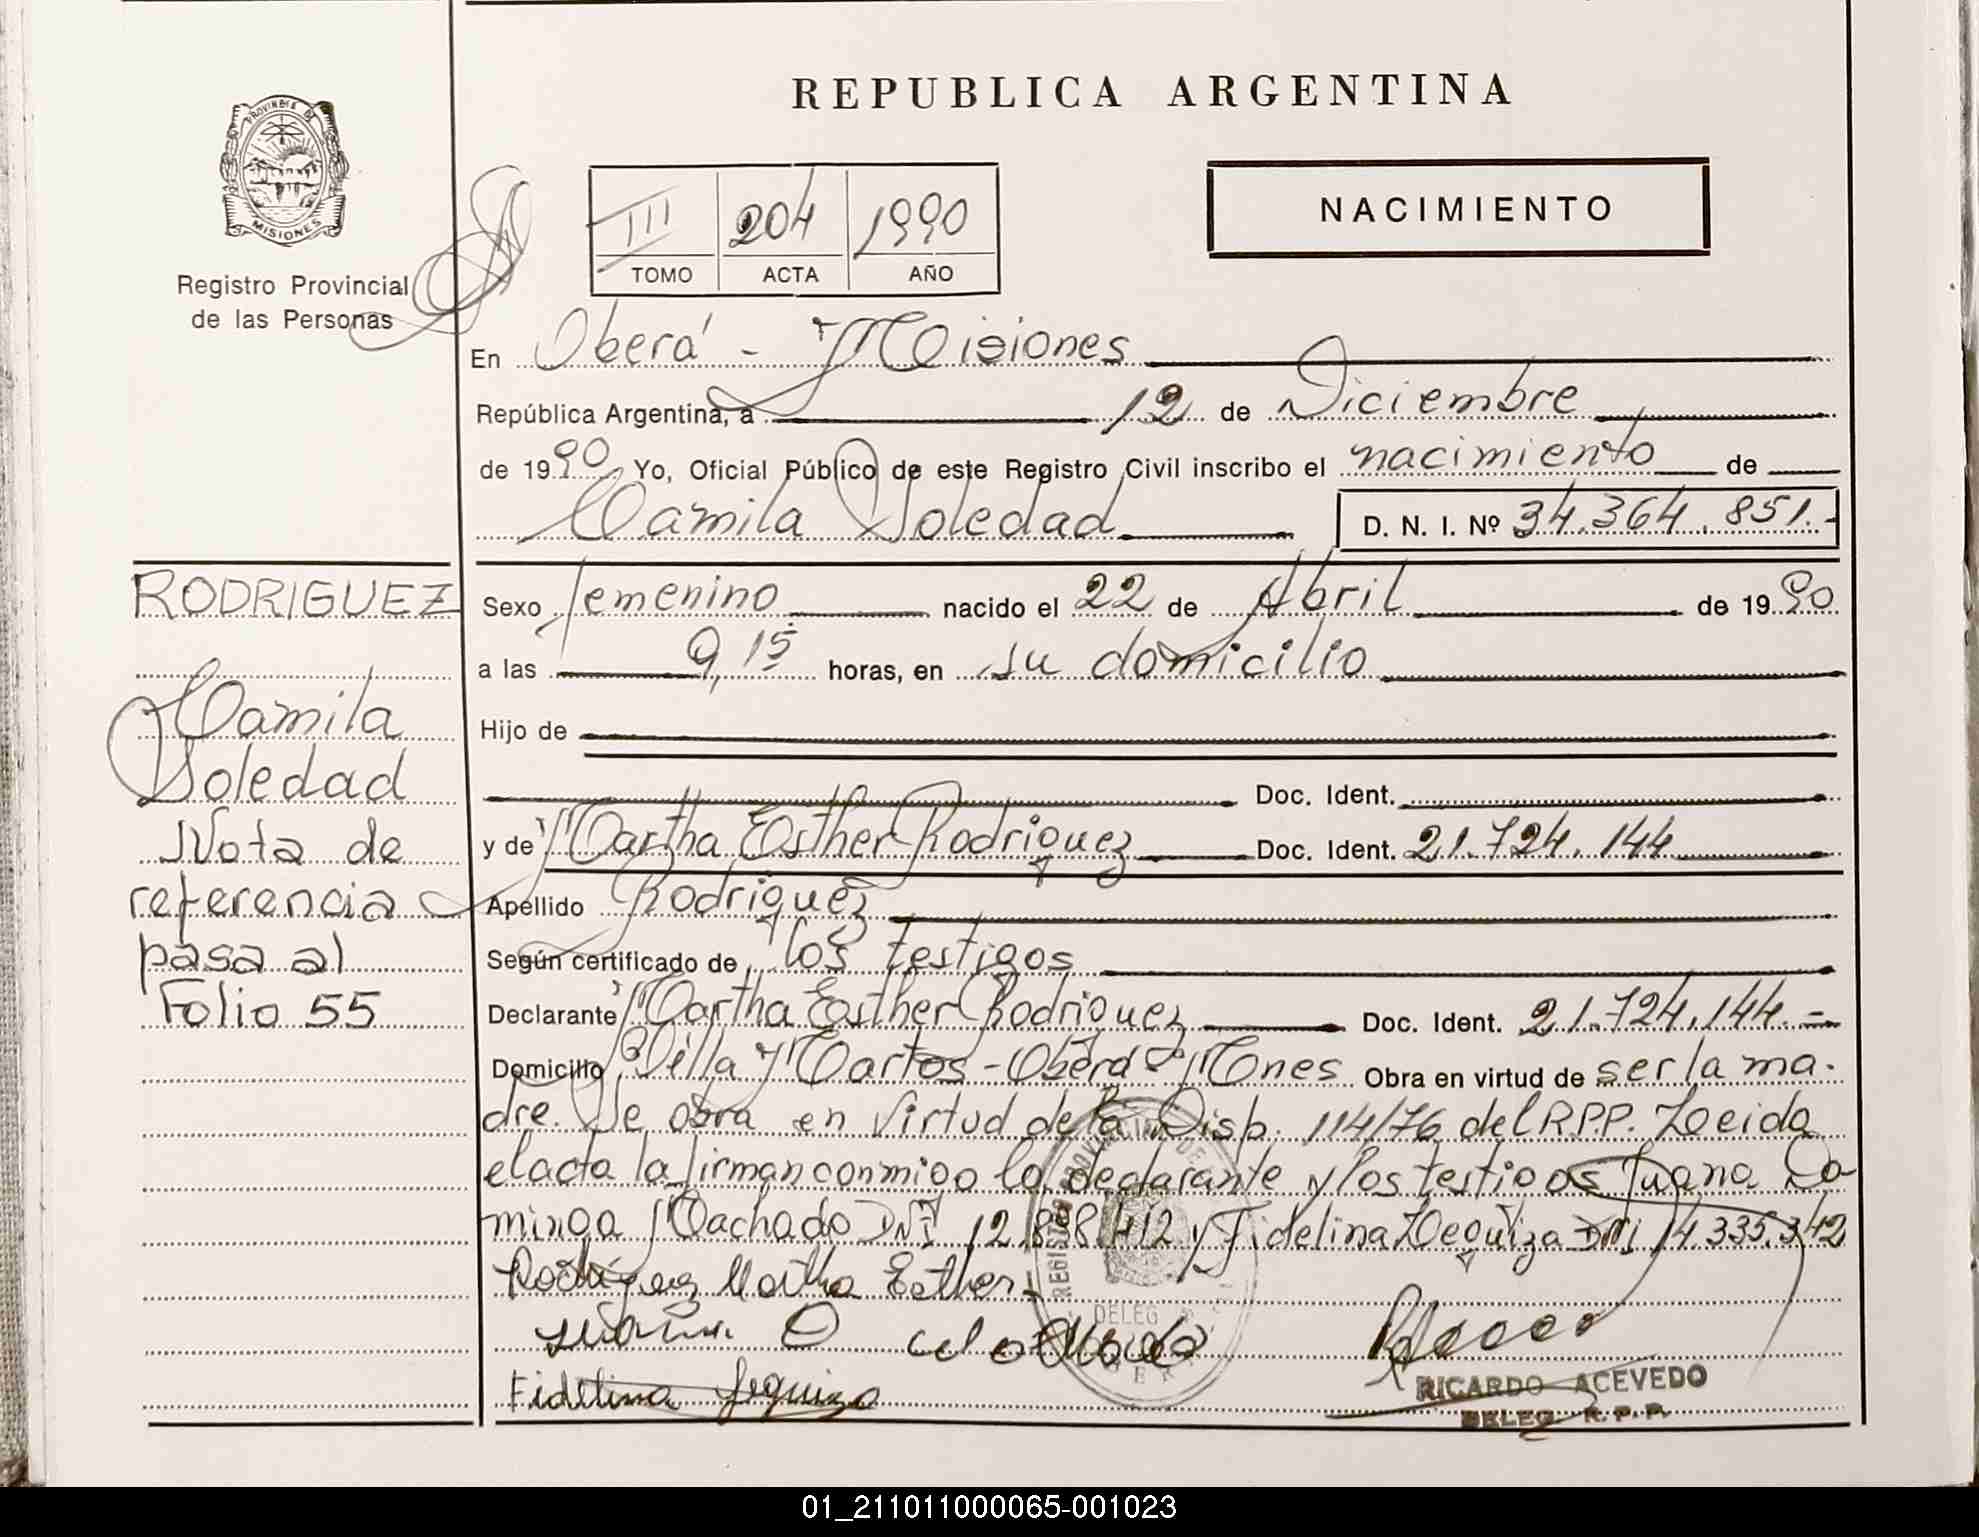 REPUBLICA ARGENTINA
PROVINCIA DE
MISIONES
Registro Provincial
de las Personas
III 204 1990
TOMO ACTA AÑO
NACIMIENTO
En Oberá - Misiones
República Argentina, a 12 de Diciembre
de 1990 Yo, Oficial Público de este Registro Civil inscribo el nacimiento de
Camila Soledad D. N. I. Nº 34.364.851.-
RODRIGUEZ
Camila
Soledad
Nota de
referencia
pasa al
Folio 55
Sexo femenino nacido el 22 de Abril de 1990
a las 9,15 horas, en su domicilio
Hijo de
Doc. Ident.
y de Martha Esther Rodriguez Doc. Ident. 21.724.144
Apellido Rodriguez
Según certificado de los testigos
Declarante Martha Esther Rodriguez Doc. Ident. 21.724.144.-
Domicilio Villa Martos - Oberá - Mnes Obra en virtud de ser la ma-
dre. Se obra en virtud de la Disp. 114/76 del R.P.P. Leida
el acta la firman conmigo la declarante y los testigos Juana Do
minga Machado DNI 12.898.412 y Fidelina Leguiza DNI 14.335.342
Rodriguez Martha Esther
Juana D Machado
Fidelina Leguiza
RICARDO ACEVEDO
DELEG. R. P. P.
01_211011000065-001023